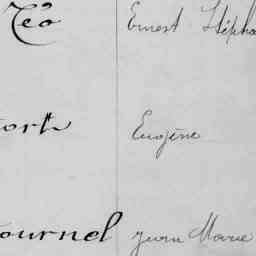 Téo Ernest Stépha
ort Eugène
ournel Jean Marie